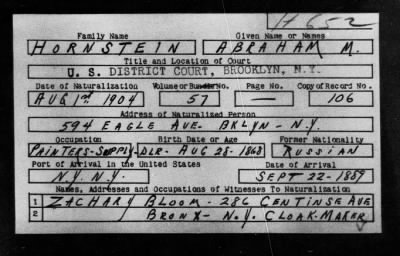 H 652
Family Name Given Name or Names
HORNSTEIN ABRAHAM M.
Title and Location of Court
U. S. DISTRICT COURT, BROOKLYN, N.Y.
Date of Naturalization Volume or Bundle No. Page No. Copy of Record No.
AUG 1st 1904 57 — 106
Address of Naturalized Person
594 EAGLE AVE- BKLYN- N.Y.
Occupation Birth Date or Age Former Nationality
PAINTERS-SUPPLY-DLR- AUG 28- 1868 RUSSIAN
Port of Arrival in the United States Date of Arrival
N.Y. N.Y. SEPT 22-1889
Names, Addresses and Occupations of Witnesses To Naturalization
1 ZACHARY BLOOM - 286 CENTINSE AVE
2 BRONX- N.Y. CLOAK-MAKER